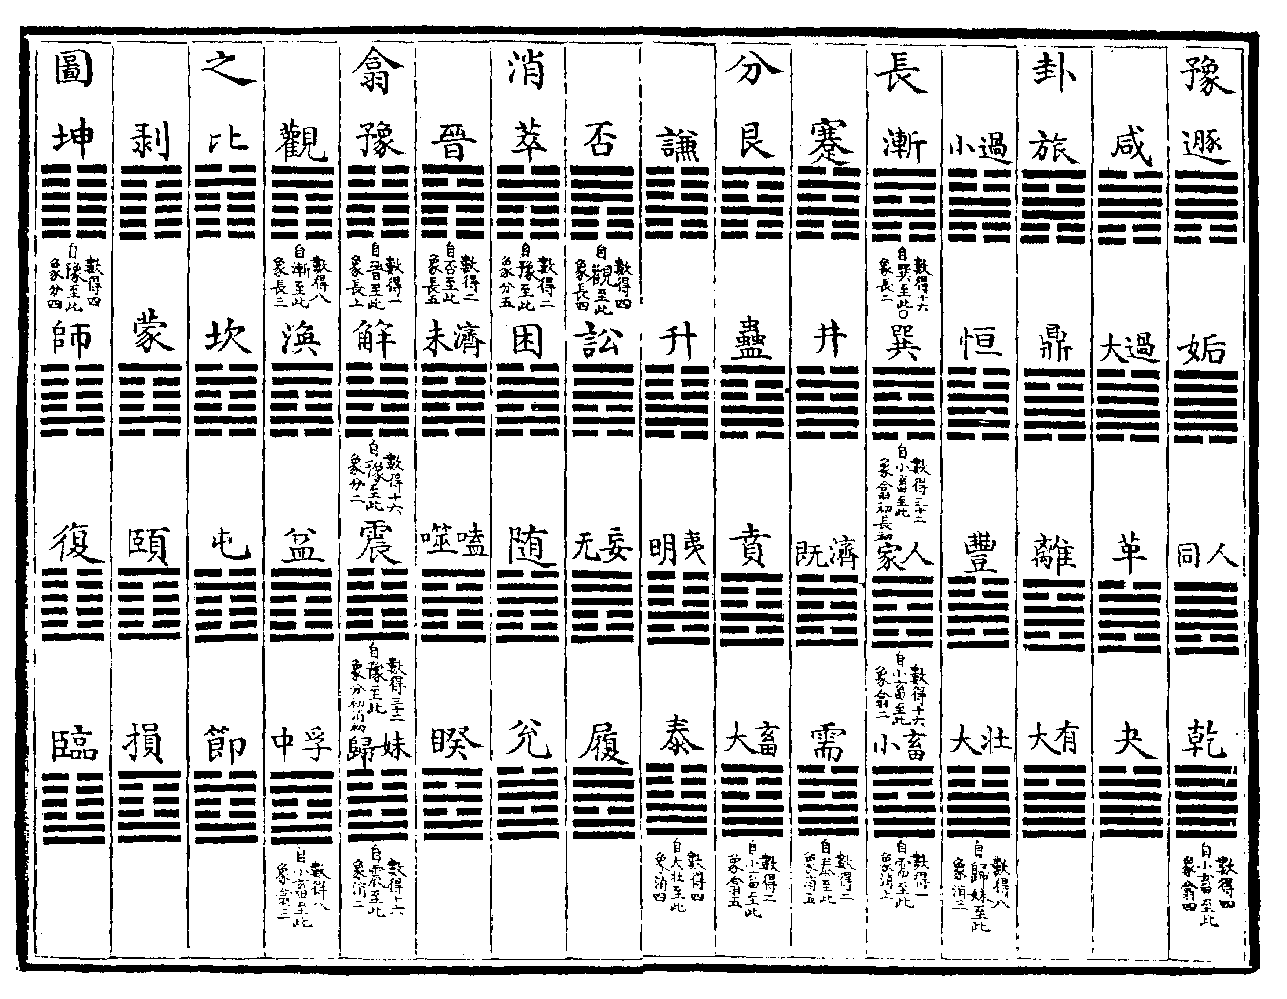 豫卦長分消翕之圖
遯 姤 同人 乾
自小畜至此 數得四 象翕四
咸 大過 革 夬
旅 鼎 離 大有
小過 恒 豐 大壯
自歸妹至此 數得八 象消三
漸
自巽至此 數得十六 象長二
巽
自小畜至此 數得三十二 象翕初長初
家人
自小畜至此 數得十六 象翕二
小畜
自需至此 數得一 象消上
蹇 井 既濟 需
自泰至此 數得二 象消五
艮 蠱 賁 大畜
自小畜至此 數得二 象翕五
謙 升 明夷 泰
自大壯至此 數得四 象消四
否
自觀至此 數得四 象長四
訟 无妄 履
萃
自豫至此 數得二 象分五
困 随 兌
晉
自否至此 數得二 象長五
未濟 噬嗑 睽
豫
自晉至此 數得一 象長上
解
自豫至此 數得十六 象分二
震
自豫至此 數得三十二 象分初消初
歸妹
自震至此 數得十六 象消二
觀
自漸至此 數得八 象長三
渙 益 中孚
自小畜至此 數得八 象翕三
比 坎 屯 節
剥 蒙 頤 損
坤
自豫至此 數得四 象分四
師 復 臨